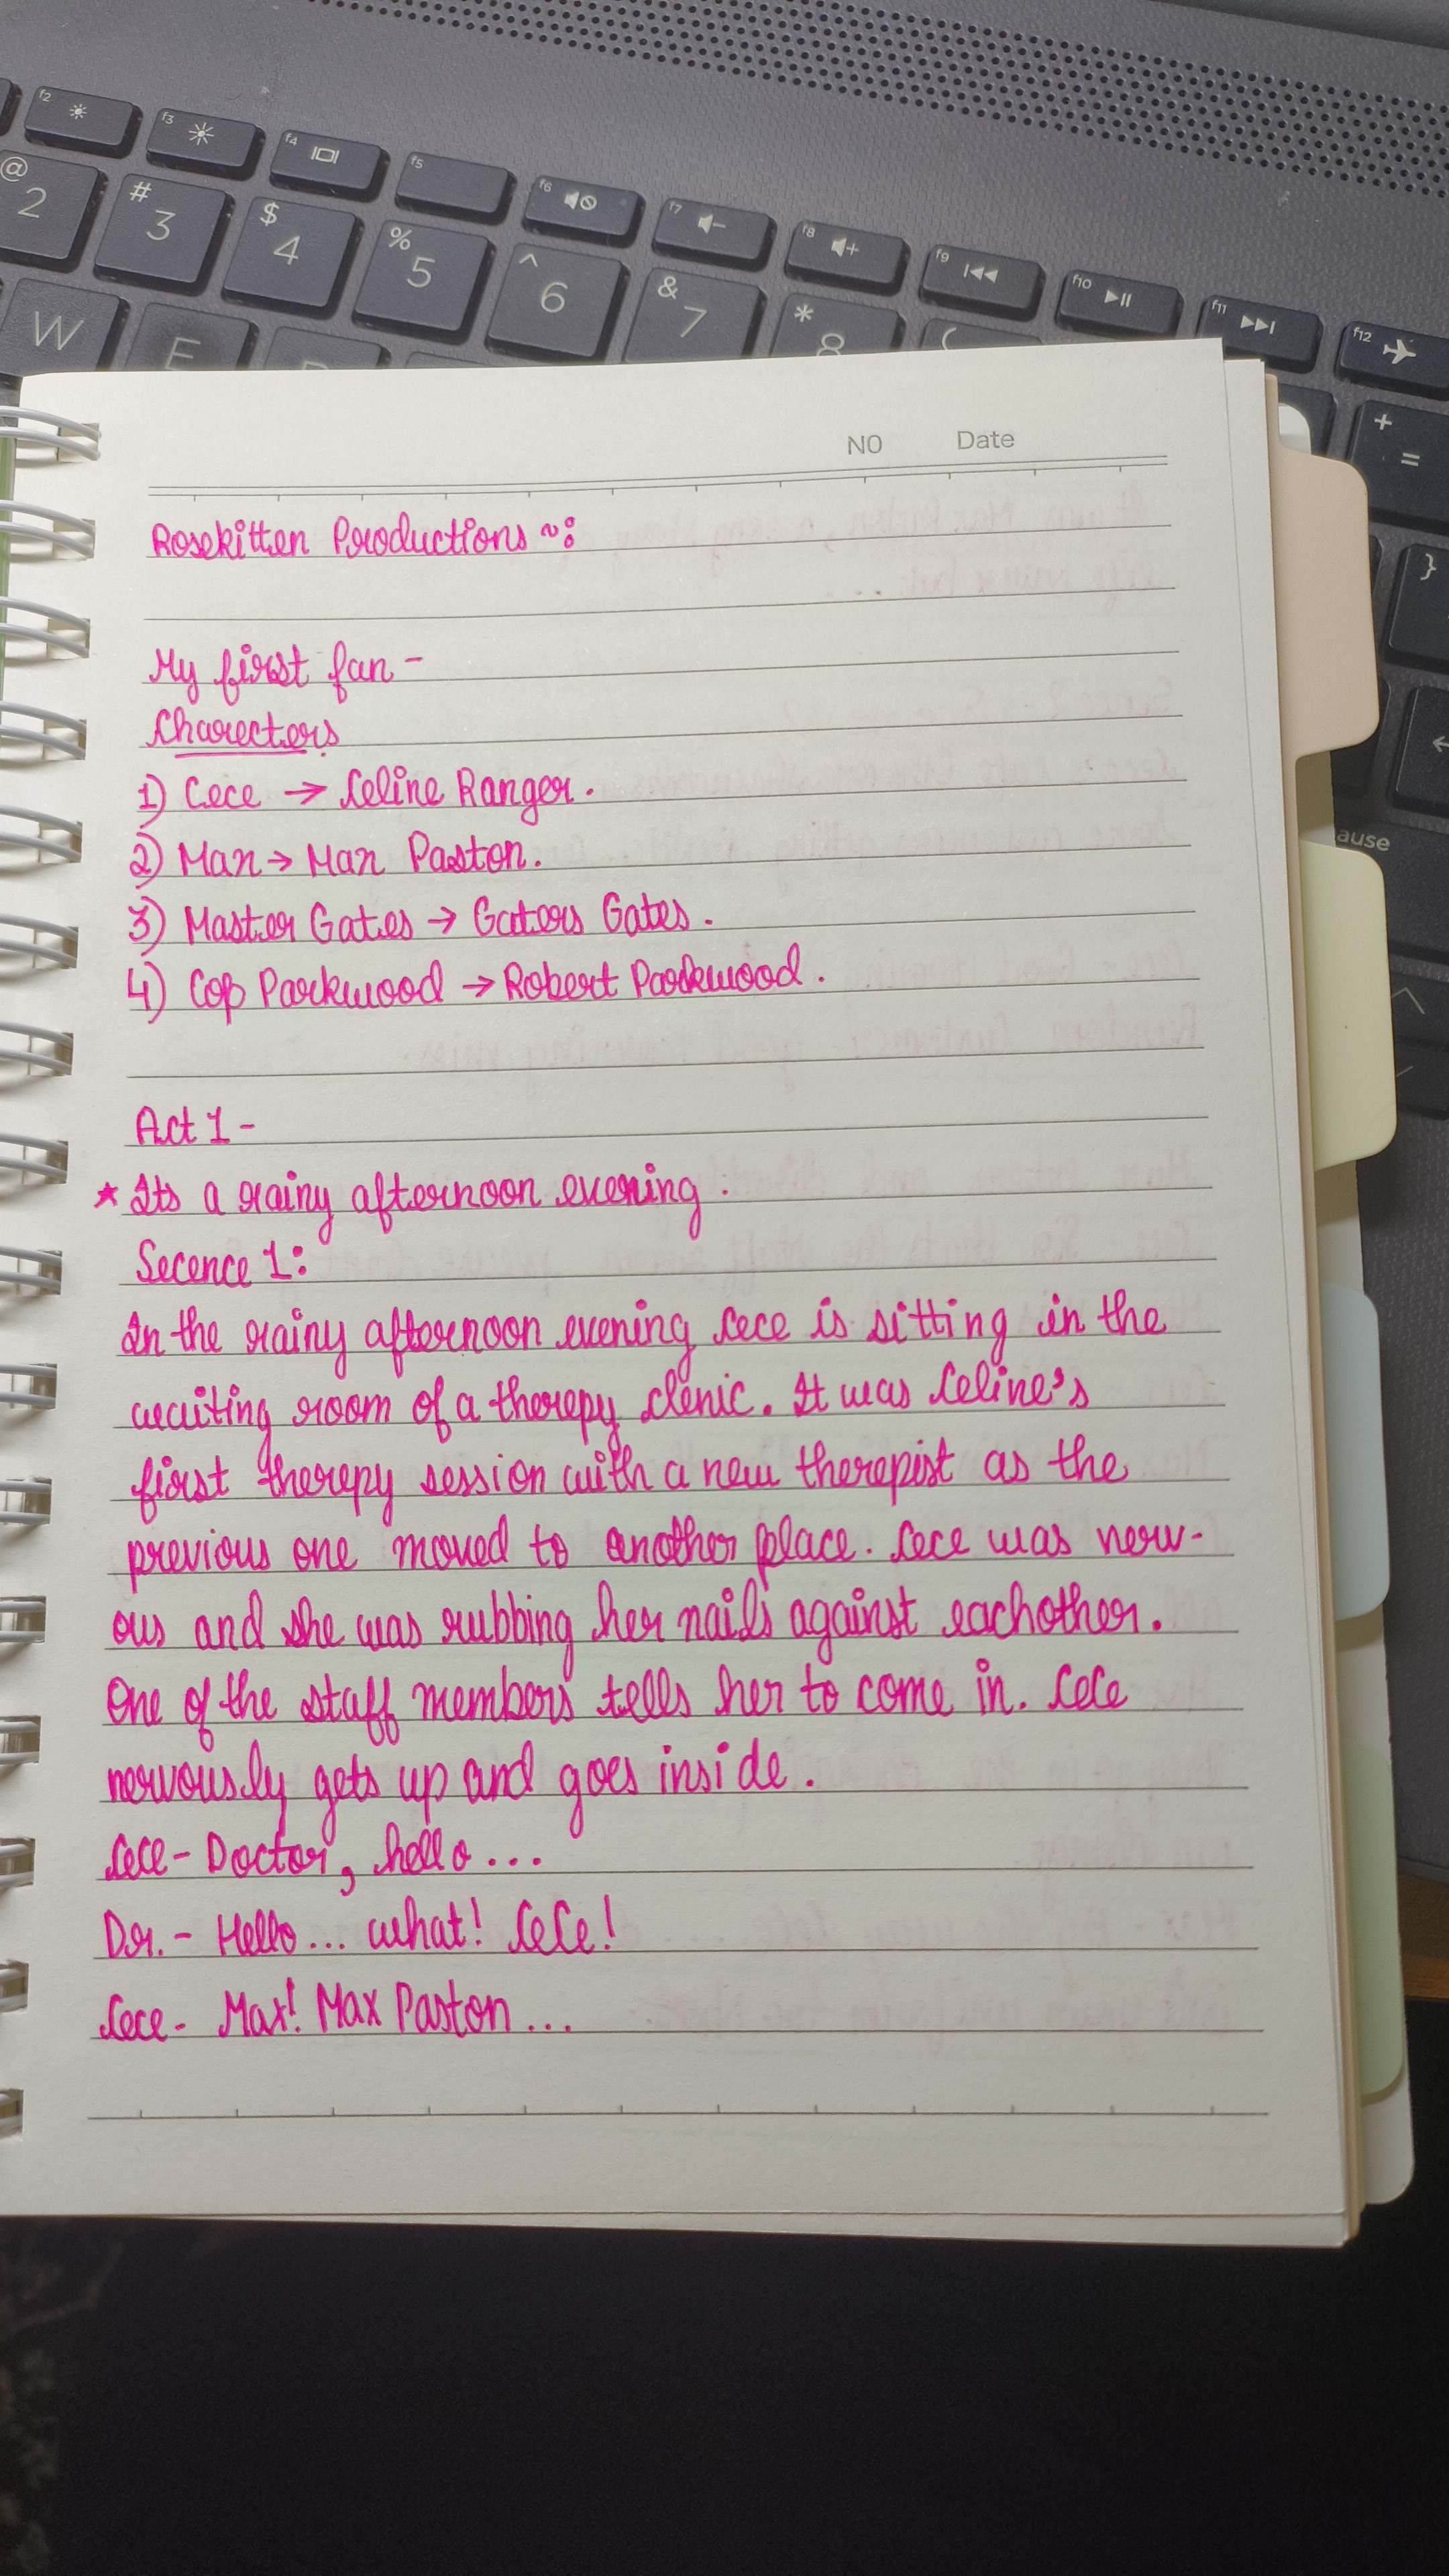 f2
f3
f4
f5
f6
f7
f8
f9
f10
f11
f12
@ 2
# 3
$ 4
% 5
^ 6
& 7
* 8
(
+ =
W
E
}
ause
NO Date
Rosekitten Productions ~:
My first fan -
Charecters
1) Cece → Celine Ranger.
2) Max → Max Paston.
3) Master Gates → Gators Gates.
4) Cop Parkwood → Robert Parkwood.
Act 1 -
* Its a rainy afternoon evening.
Secence 1:
In the rainy afternoon evening Cece is sitting in the
waiting room of a therepy clenic. It was Celine's
first therepy session with a new therepist as the
previous one moved to another place. Cece was nerv-
ous and she was rubbing her nails against eachother.
One of the staff members tells her to come in. CeCe
nervously gets up and goes inside.
Cece - Doctor, hello...
Dr. - Hello... what! CeCe!
Cece - Max! Max Paston...